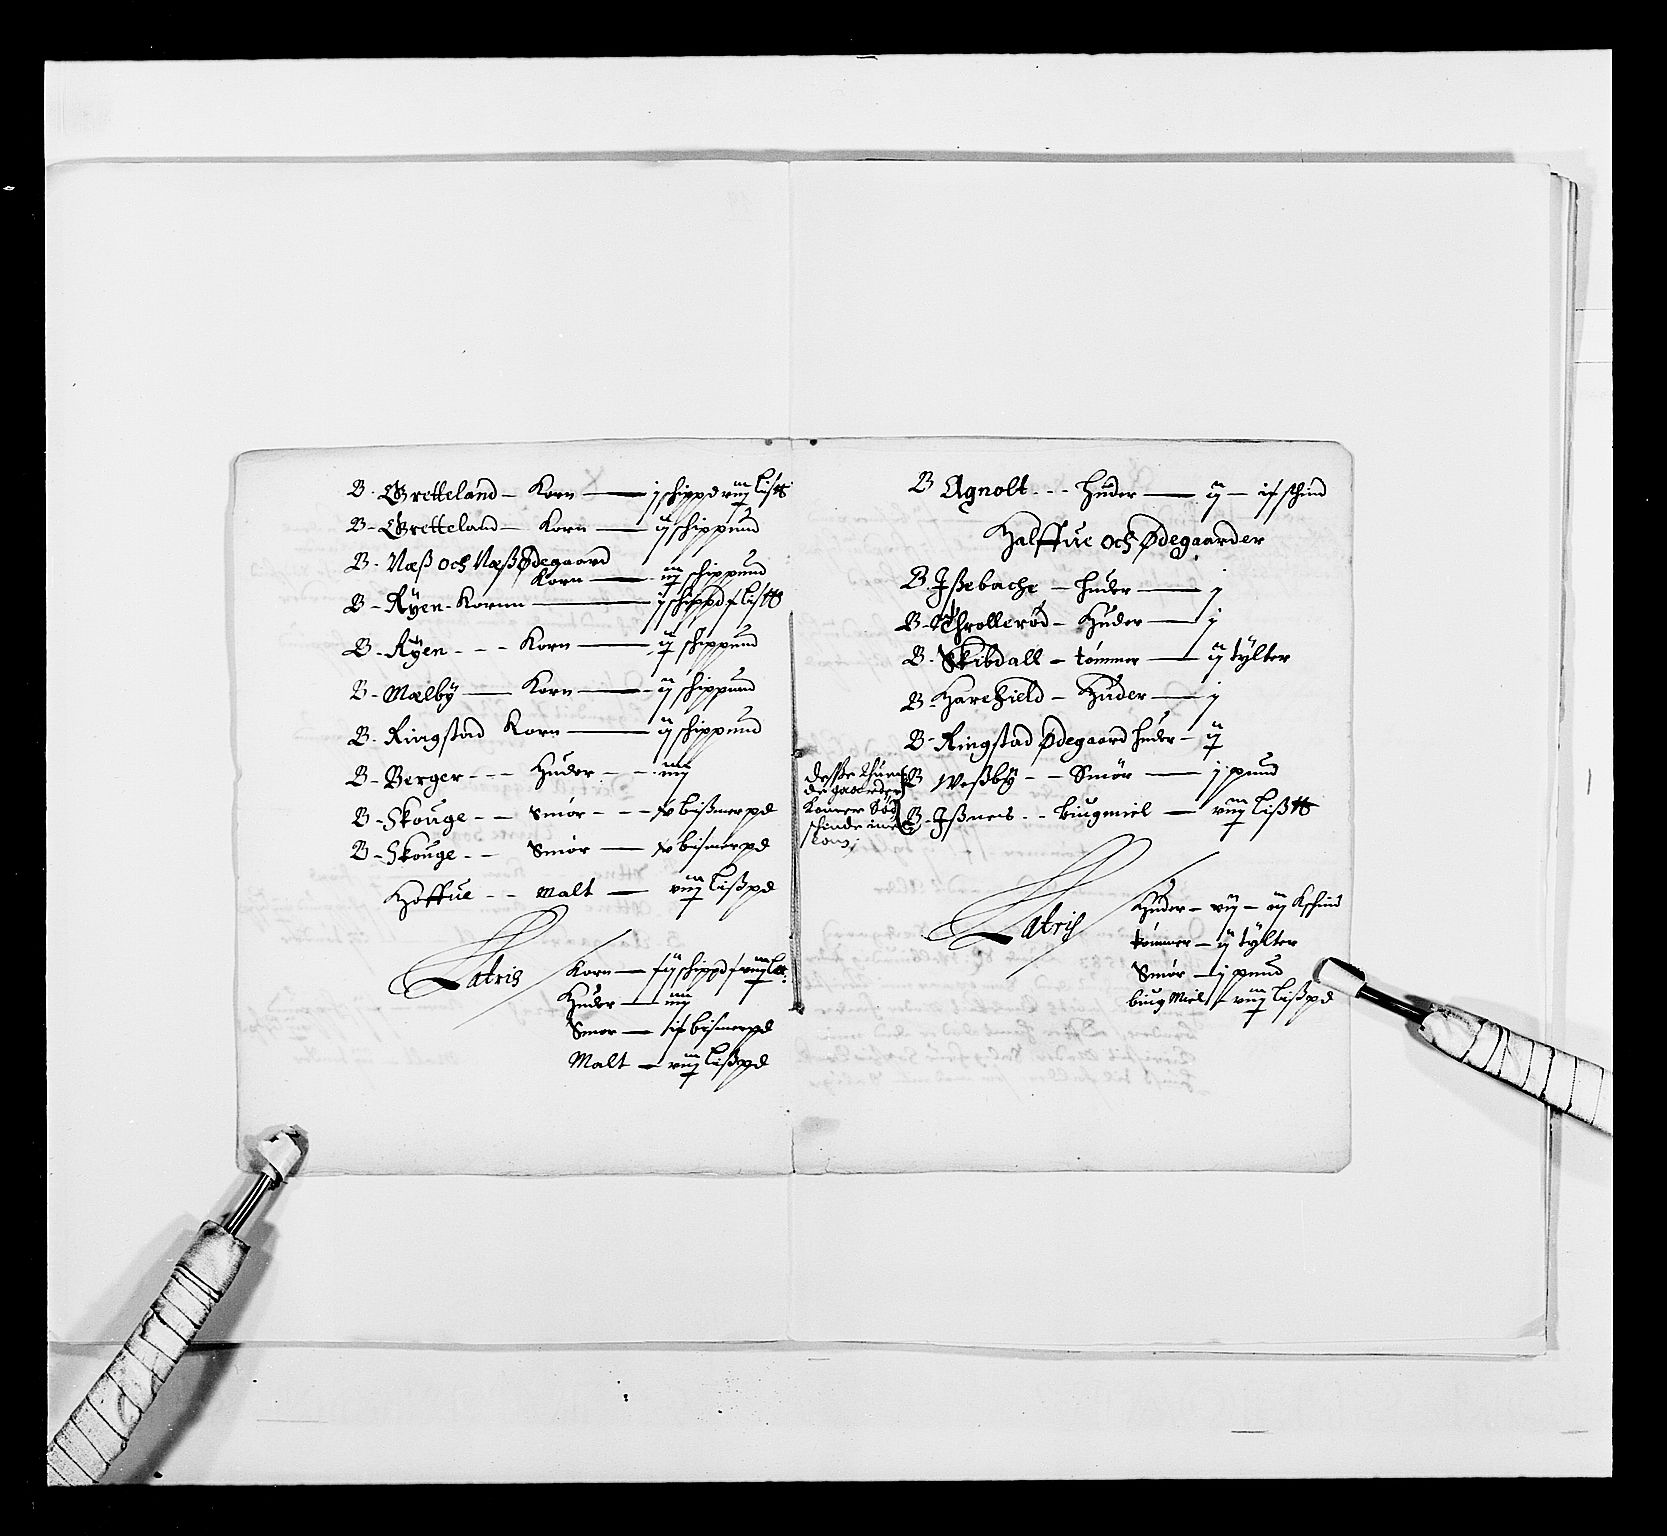 B. Gretteland - Korn - j schippd viij lis℔
B - Gretteland - Korn - ij schippund
B. Næß och Næß Ødegaard
Korn - iij schippund
B - Ryen - Kornn - j schippd x lis℔
B - Ryen - - - Korn - ij schippund
B - Mælby - Korn - ij schippund
B. Ringstad Korn - ij schippund
B - Berger - - - Huder - - iiij
B - Skouge - - Smør - - - bißmerpd
B - Skouge - - Smør - bismerpd
Hoffue - - Malt - viij Lißpd
Latris
Korn - schippd
Huder - iiij
Smør - bismerpd
Malt - viij Lißpd
B Agnolt - - - Huder - ij - schind
Halffue och Ødegaarder
B. Ißebache - Huder - j
B. Throllerød - Huder - j
B. Skibdall - tømmer - ij tylter
B. Harehield - Huder - j
B - Ringstad Ødegaard huder - ij
B Weßby - - Smør - j pund
B. Ißnes - - biugmiel - viij Liß℔
deße
degaarder
Latris
Huder - vij - schind
tømmer - ij tylter
Smør - j pund
biug Miel - viij Lißpd